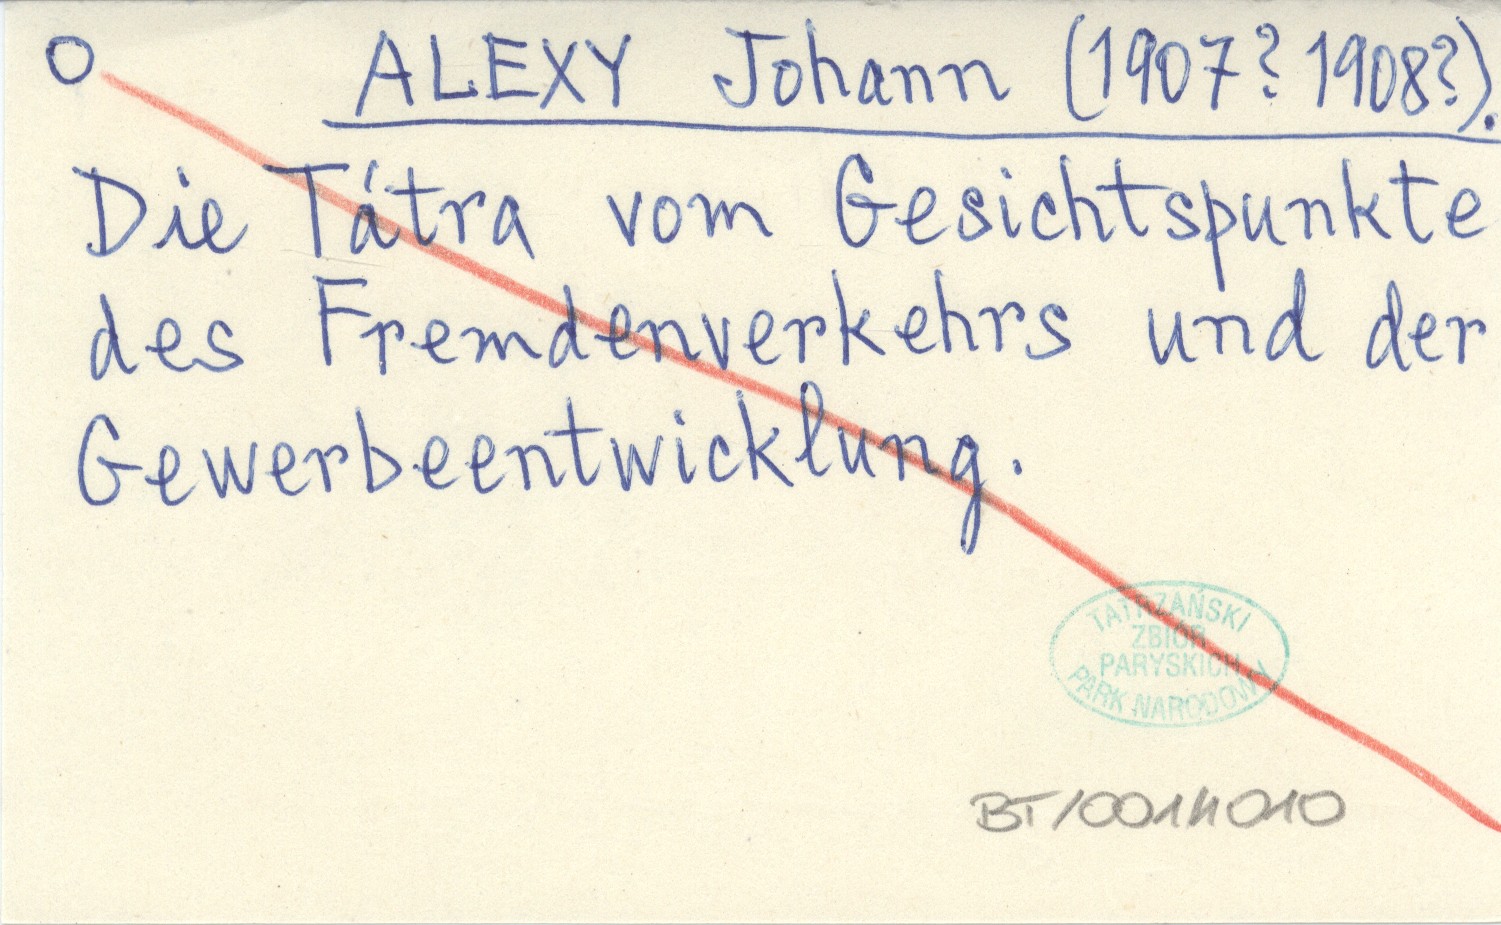 O ALEXY Johann (1907? 1908?).
Die Tátra vom Gesichtspunkte
des Fremdenverkehrs und der
Gewerbeentwicklung.
TATRZAŃSKI
ZBIÓR
PARYSKICH
PARK NARODOWY